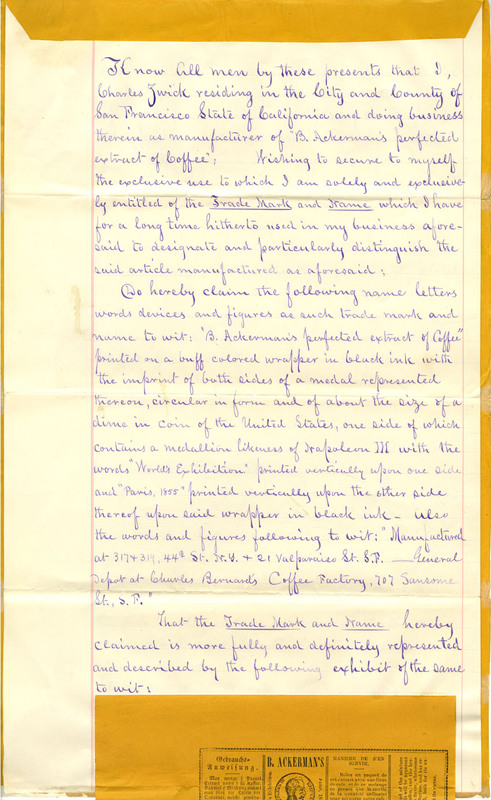 Know All men by these presents that I,
Charles Zwick residing in the City and County of
San Francisco State of California and doing business
therein as manufacturer of "B. Ackerman's perfected
extract of Coffee"; Wishing to secure to myself
the exclusive use to which I am solely and exclusive-
ly entitled of the Trade Mark and Name which I have
for a long time hitherto used in my business afore-
said to designate and particularly distinguish the
said article manufactured as aforesaid:
Do hereby claim the following name letters
words devices and figures as such trade mark and
name to wit: "B. Ackerman's perfected extract of Coffee"
printed on a buff colored wrapper in black ink with
the imprint of both sides of a medal represented
thereon, circular in form and of about the size of a
dime in coin of the United States, one side of which
contains a medallion likeness of Napoleon III with the
words "World's Exhibition" printed vertically upon one side
and "Paris, 1855" printed vertically upon the other side
thereof upon said wrapper in black ink - Also
the words and figures following to wit: "Manufactured
at 317 & 319, 44th St. N.Y. & 21 Valparaiso St. S.F. — General
Depot at Charles Bernard's Coffee Factory, 707 Sansome
St., S.F."
That the Trade Mark and Name hereby
claimed is more fully and definitely represented
and described by the following exhibit of the same
to wit:
Gebrauchs-
Anweisung.
B. ACKERMAN'S
MANIERE DE S'EN
SERVIR.